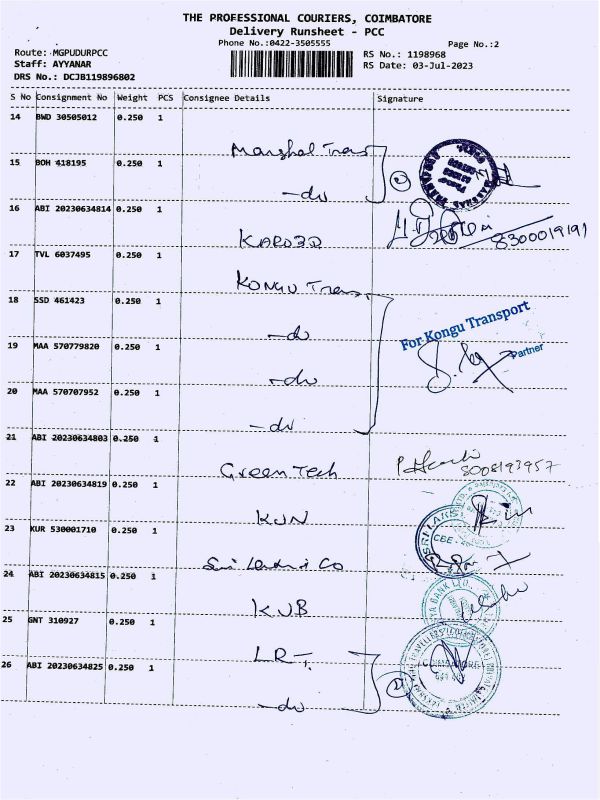 THE PROFESSIONAL COURIERS, COIMBATORE
Delivery Runsheet - PCC
Phone No.:0422-3505555
Page No.:2
Route: MGPUDURPCC
RS No.: 1198968
Staff: AYYANAR
RS Date: 03-Jul-2023
DRS No.: DCJB119896802
S No Consignment No Weight PCS Consignee Details Signature
14 BWD 30505012 0.250 1
Marshal Trans
15 BOH 418195 0.250 1
-do
16 ABI 20230634814 0.250 1
8300019191
17 TVL 6037495 0.250 1
KONGU Trans
18 SSD 461423 0.250 1
-do
For Kongu Transport
Partner
19 MAA 570779820 0.250 1
-do
20 MAA 570707952 0.250 1
-do
21 ABI 20230634803 0.250 1
Green Tech
8008193957
22 ABI 20230634819 0.250 1
23 KUR 530001710 0.250 1
24 ABI 20230634815 0.250 1
KVB
25 GNT 310927 0.250 1
LRT
26 ABI 20230634825 0.250 1
-do